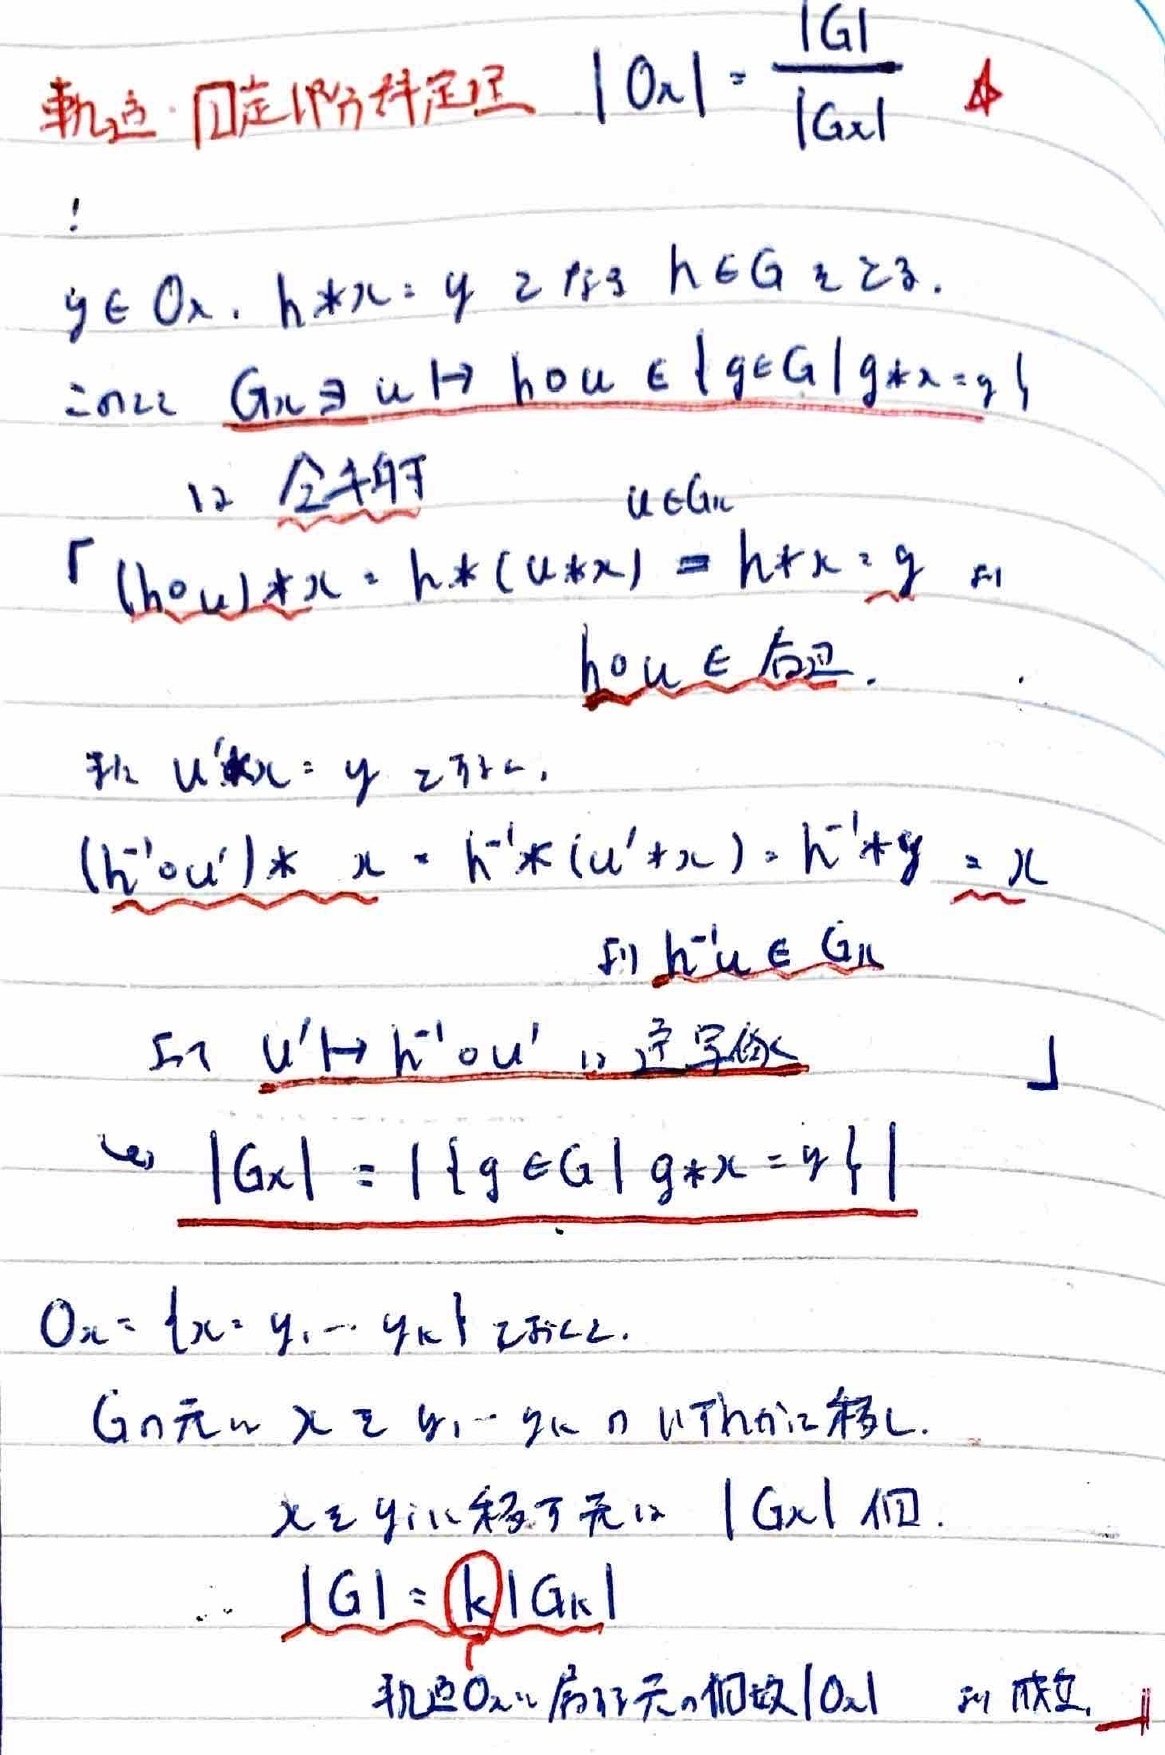 軌道・固定部分群定理 |Ox| = |G| / |Gx|
!
y ∈ Ox. h * x = y となる h ∈ G をとる.
このとき Gx ∋ u ↦ h∘u ∈ {g∈G | g*x = y}
は 全単射 u∈Gx
「 (h∘u) * x = h * (u*x) = h*x = y より
h∘u ∈ 右辺.
逆に u'*x = y とすると,
(h⁻¹∘u') * x = h⁻¹ * (u' * x) = h⁻¹ * y = x
より h⁻¹u ∈ Gx
よって u' ↦ h⁻¹∘u' は 逆写像 」
|Gx| = |{g ∈ G | g*x = y}|
Ox = {x = y₁ … yk} とおくと.
Gの元は x を y₁ … yk の いずれかに移し.
x を yi に移す元は |Gx| 個.
∴ |G| = k |Gx|
軌道Oxに属する元の個数 |Ox| より 成立.